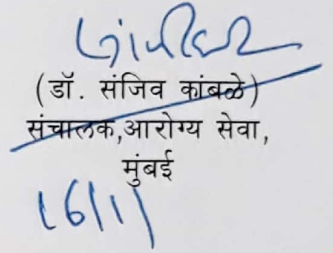 (डॉ. संजिव कांबळे)
संचालक,आरोग्य सेवा,
मुंबई
16/11